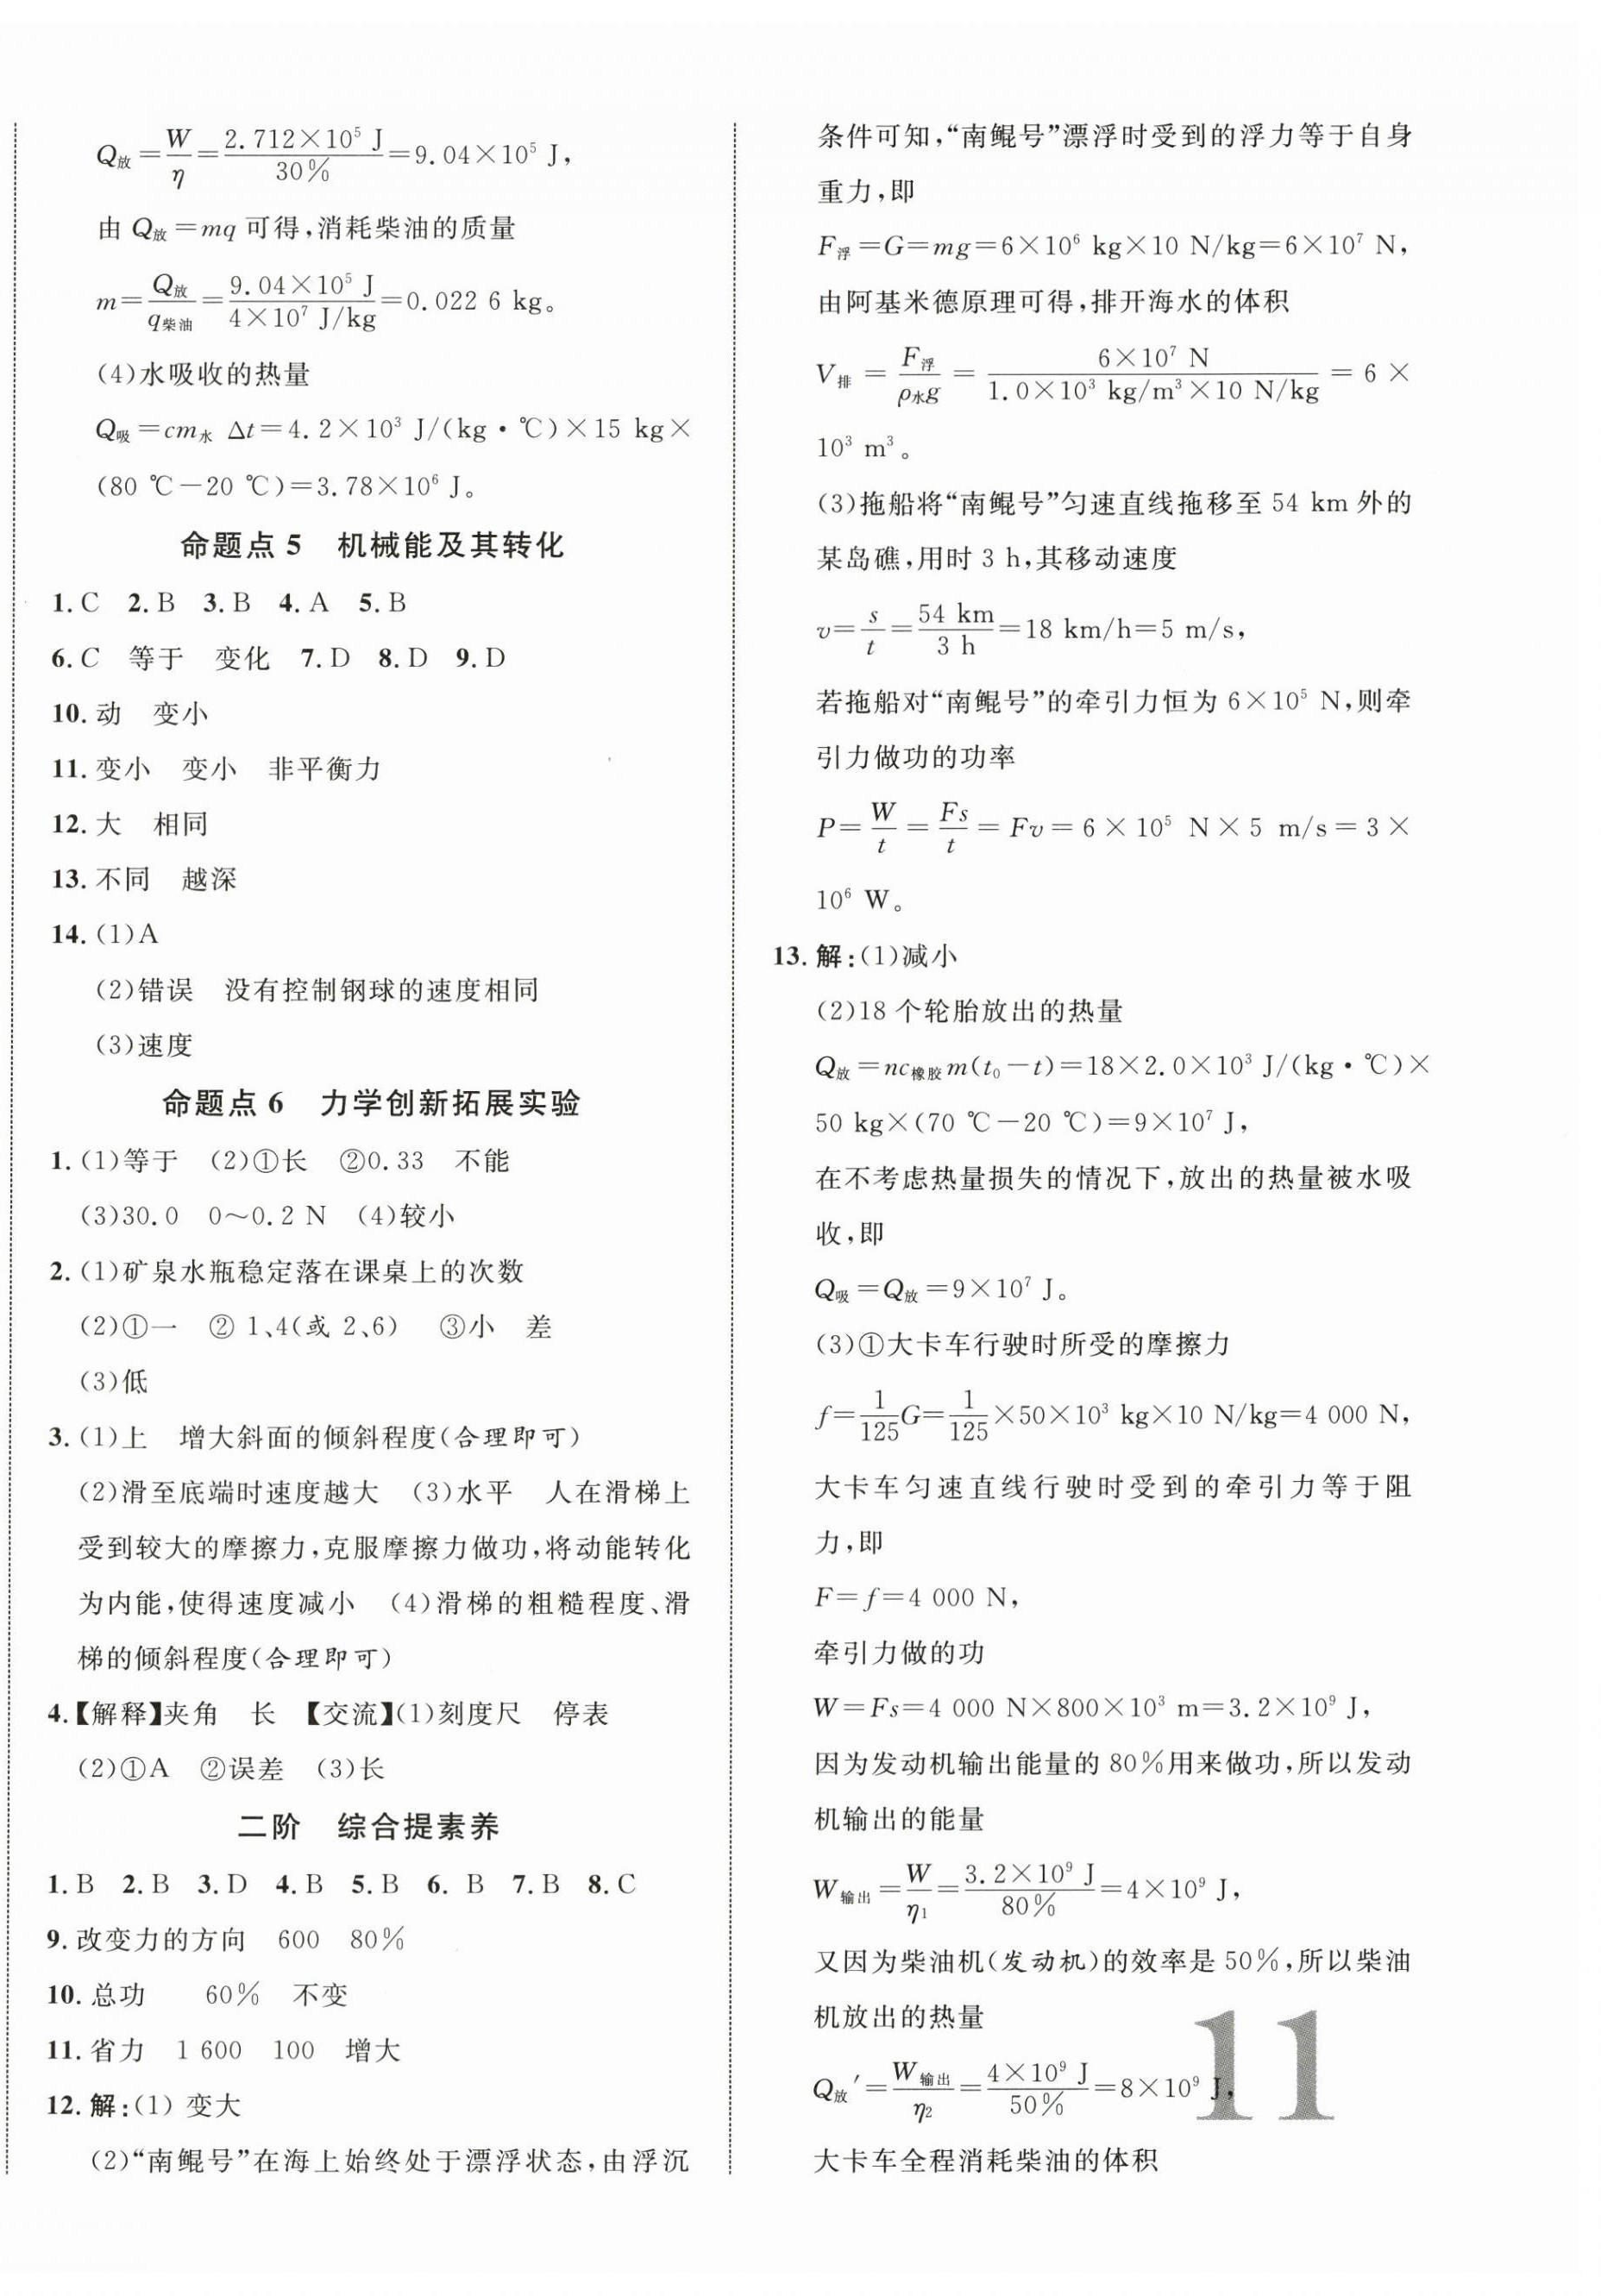 Q放=W/η=2.712×10⁵ J/30%=9.04×10⁵ J,
由 Q放=mq 可得,消耗柴油的质量
m=Q放/q柴油=9.04×10⁵ J/4×10⁷ J/kg=0.022 6 kg。
(4)水吸收的热量
Q吸=cm水 Δt=4.2×10³ J/(kg·℃)×15 kg×
(80 ℃-20 ℃)=3.78×10⁶ J。
命题点 5 机械能及其转化
1.C 2.B 3.B 4.A 5.B
6.C 等于 变化 7.D 8.D 9.D
10.动 变小
11.变小 变小 非平衡力
12.大 相同
13.不同 越深
14.(1)A
(2)错误 没有控制钢球的速度相同
(3)速度
命题点 6 力学创新拓展实验
1.(1)等于 (2)①长 ②0.33 不能
(3)30.0 0～0.2 N (4)较小
2.(1)矿泉水瓶稳定落在课桌上的次数
(2)①一 ② 1、4(或 2、6) ③小 差
(3)低
3.(1)上 增大斜面的倾斜程度(合理即可)
(2)滑至底端时速度越大 (3)水平 人在滑梯上
受到较大的摩擦力,克服摩擦力做功,将动能转化
为内能,使得速度减小 (4)滑梯的粗糙程度、滑
梯的倾斜程度(合理即可)
4.【解释】夹角 长 【交流】(1)刻度尺 停表
(2)①A ②误差 (3)长
二阶 综合提素养
1.B 2.B 3.D 4.B 5.B 6.B 7.B 8.C
9.改变力的方向 600 80%
10.总功 60% 不变
11.省力 1 600 100 增大
12.解:(1) 变大
(2)“南鲲号”在海上始终处于漂浮状态,由浮沉
条件可知,“南鲲号”漂浮时受到的浮力等于自身
重力,即
F浮=G=mg=6×10⁶ kg×10 N/kg=6×10⁷ N,
由阿基米德原理可得,排开海水的体积
V排=F浮/ρ水g=6×10⁷ N/1.0×10³ kg/m³×10 N/kg=6×
10³ m³。
(3)拖船将“南鲲号”匀速直线拖移至 54 km 外的
某岛礁,用时 3 h,其移动速度
v=s/t=54 km/3 h=18 km/h=5 m/s,
若拖船对“南鲲号”的牵引力恒为 6×10⁵ N,则牵
引力做功的功率
P=W/t=Fs/t=Fv=6×10⁵ N×5 m/s=3×
10⁶ W。
13.解:(1)减小
(2)18 个轮胎放出的热量
Q放=nc橡胶m(t₀-t)=18×2.0×10³ J/(kg·℃)×
50 kg×(70 ℃-20 ℃)=9×10⁷ J,
在不考虑热量损失的情况下,放出的热量被水吸
收,即
Q吸=Q放=9×10⁷ J。
(3)①大卡车行驶时所受的摩擦力
f=1/125G=1/125×50×10³ kg×10 N/kg=4 000 N,
大卡车匀速直线行驶时受到的牵引力等于阻
力,即
F=f=4 000 N,
牵引力做的功
W=Fs=4 000 N×800×10³ m=3.2×10⁹ J,
因为发动机输出能量的 80%用来做功,所以发动
机输出的能量
W输出=W/η₁=3.2×10⁹ J/80%=4×10⁹ J,
又因为柴油机(发动机)的效率是 50%,所以柴油
机放出的热量
Q放′=W输出/η₂=4×10⁹ J/50%=8×10⁹ J,
大卡车全程消耗柴油的体积
11